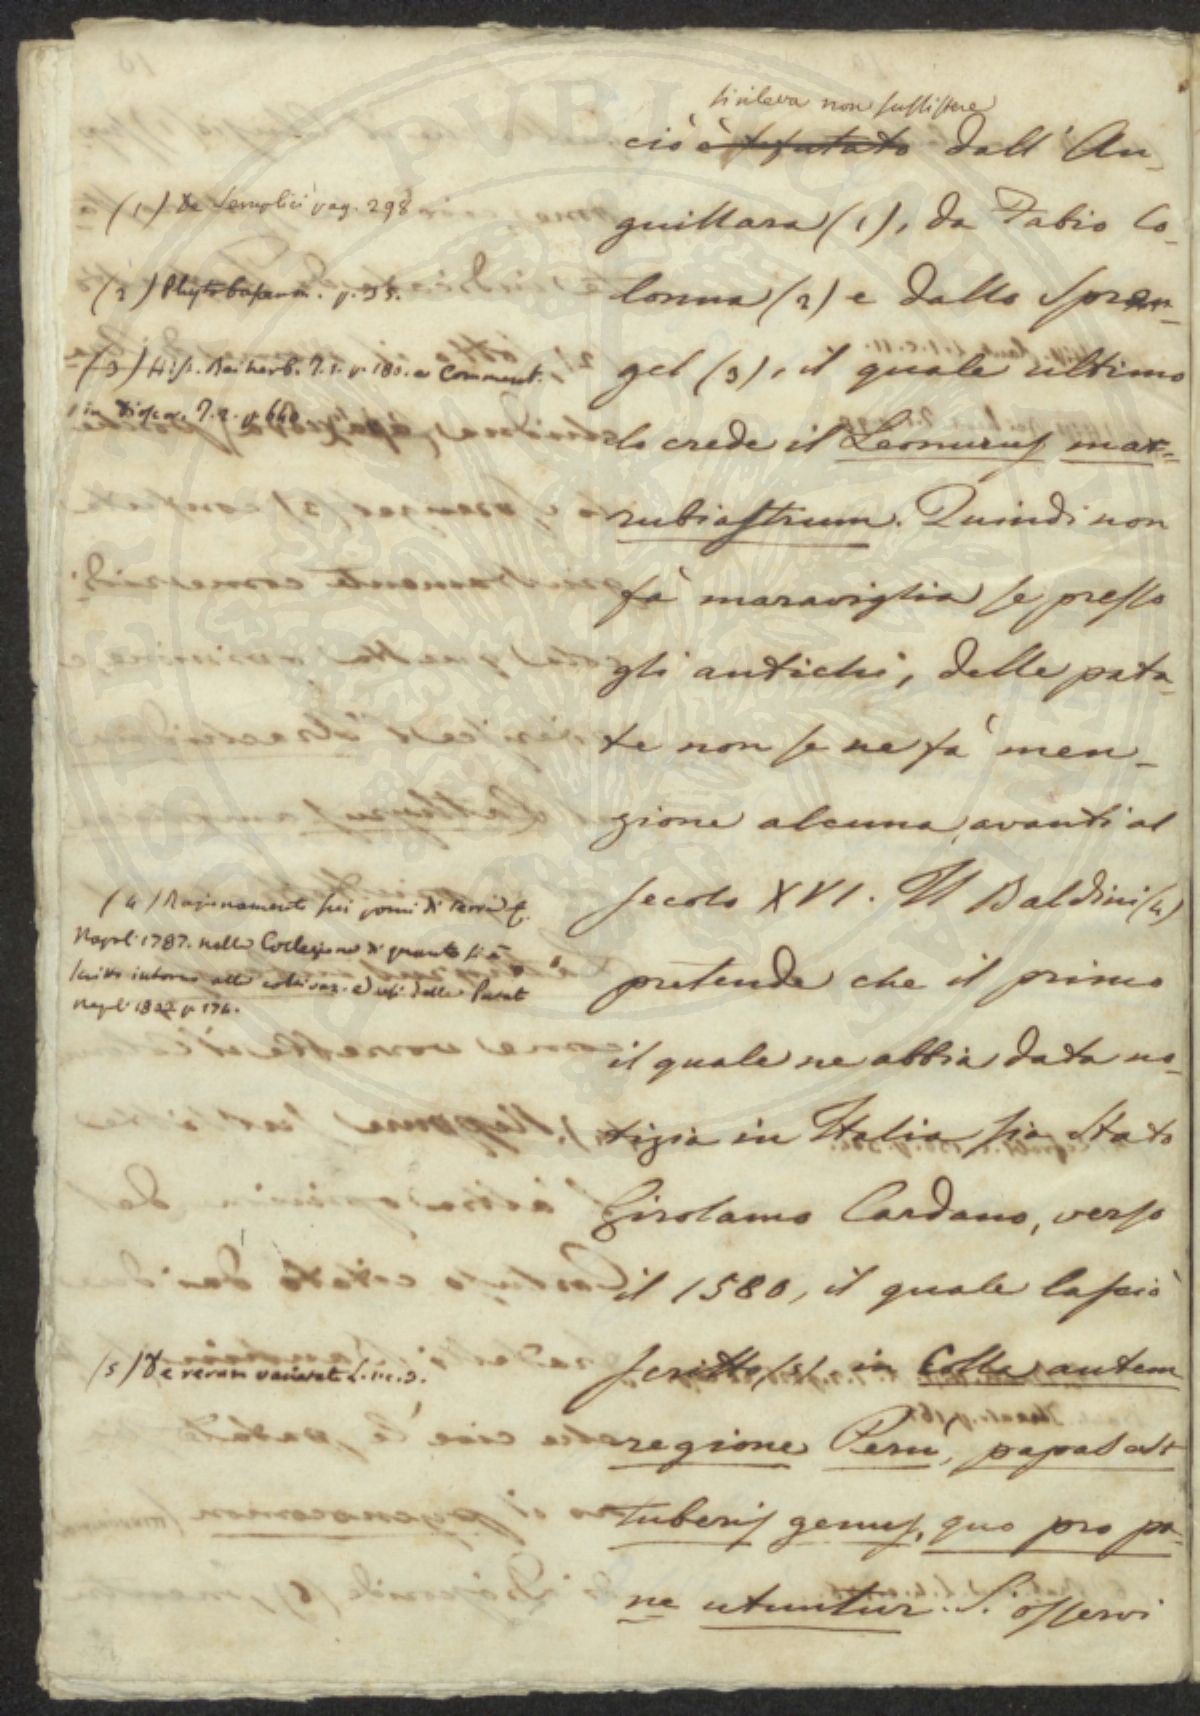 si rileva non sussistere
ciò è refutato dall'An-
guillara (1), da Fabio Co-
lonna (2) e dallo Spren-
gel (3), il quale ultimo
lo crede il Leonurus mar-
rubiastrum. Quindi non
fà maraviglia se presso
gli antichi, delle pata-
te non se ne fà men-
zione alcuna avanti al
secolo XVI. Il Baldini (4)
pretende che il primo
il quale ne abbia data no-
tizia in Italia sia stato
Girolamo Cardano, verso
il 1580, il quale lasciò
scritto (5) in Colla autem
regione Peru, papas est
tuberis genus, quo pro pa-
ne utuntur. S'osservi
(1) De Semplici pag. 298
(2) Phytobasanon. p. 35.
(3) Hist. Rei herb. T. 1. p. 180. e Comment.
in Dioscor. T. 2. p. 640
(4) Ragionamento sui pomi di terra
Napoli 1787. nella Collezione di quanto si è
scritto intorno alla coltivaz. ed usi delle Patat
Napoli 1803 p. 176.
(5) De rerum varietat L. 1. c. 3.